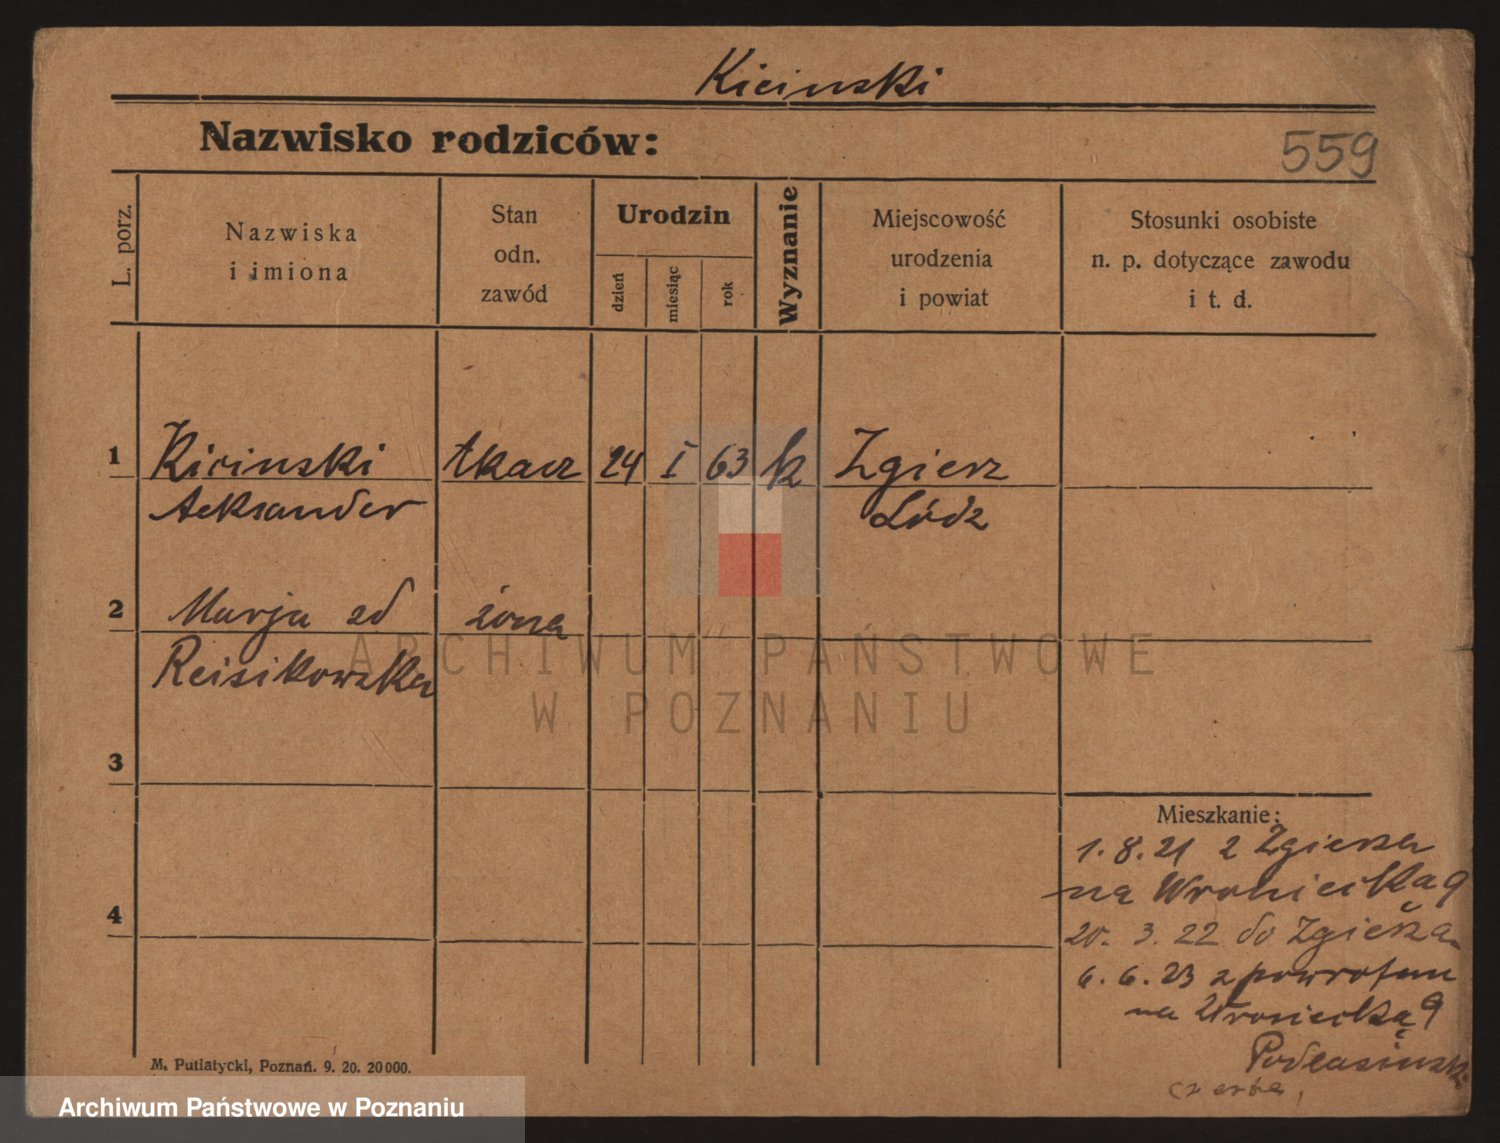 Kicinski
Nazwisko rodziców:
559
L. porz.
Nazwiska
i imiona
Stan
odn.
zawód
Urodzin
dzień
miesiąc
rok
Wyznanie
Miejscowość
urodzenia
i powiat
Stosunki osobiste
n. p. dotyczące zawodu
i t. d.
1 Kicinski tkacz 24 I 63 k Zgierz
Aeksander Łódz
2 Marja zd żona
Reisikowska
ARCHIWUM PAŃSTWOWE
W POZNANIU
3
Mieszkanie:
1. 8. 21 z Zgierza
na Wroniecką 9
4
20. 3. 22 do Zgierza
6. 6. 23 z powrotem
na Wroniecką 9
M. Putiatycki, Poznań. 9. 20. 20000.
Archiwum Państwowe w Poznaniu